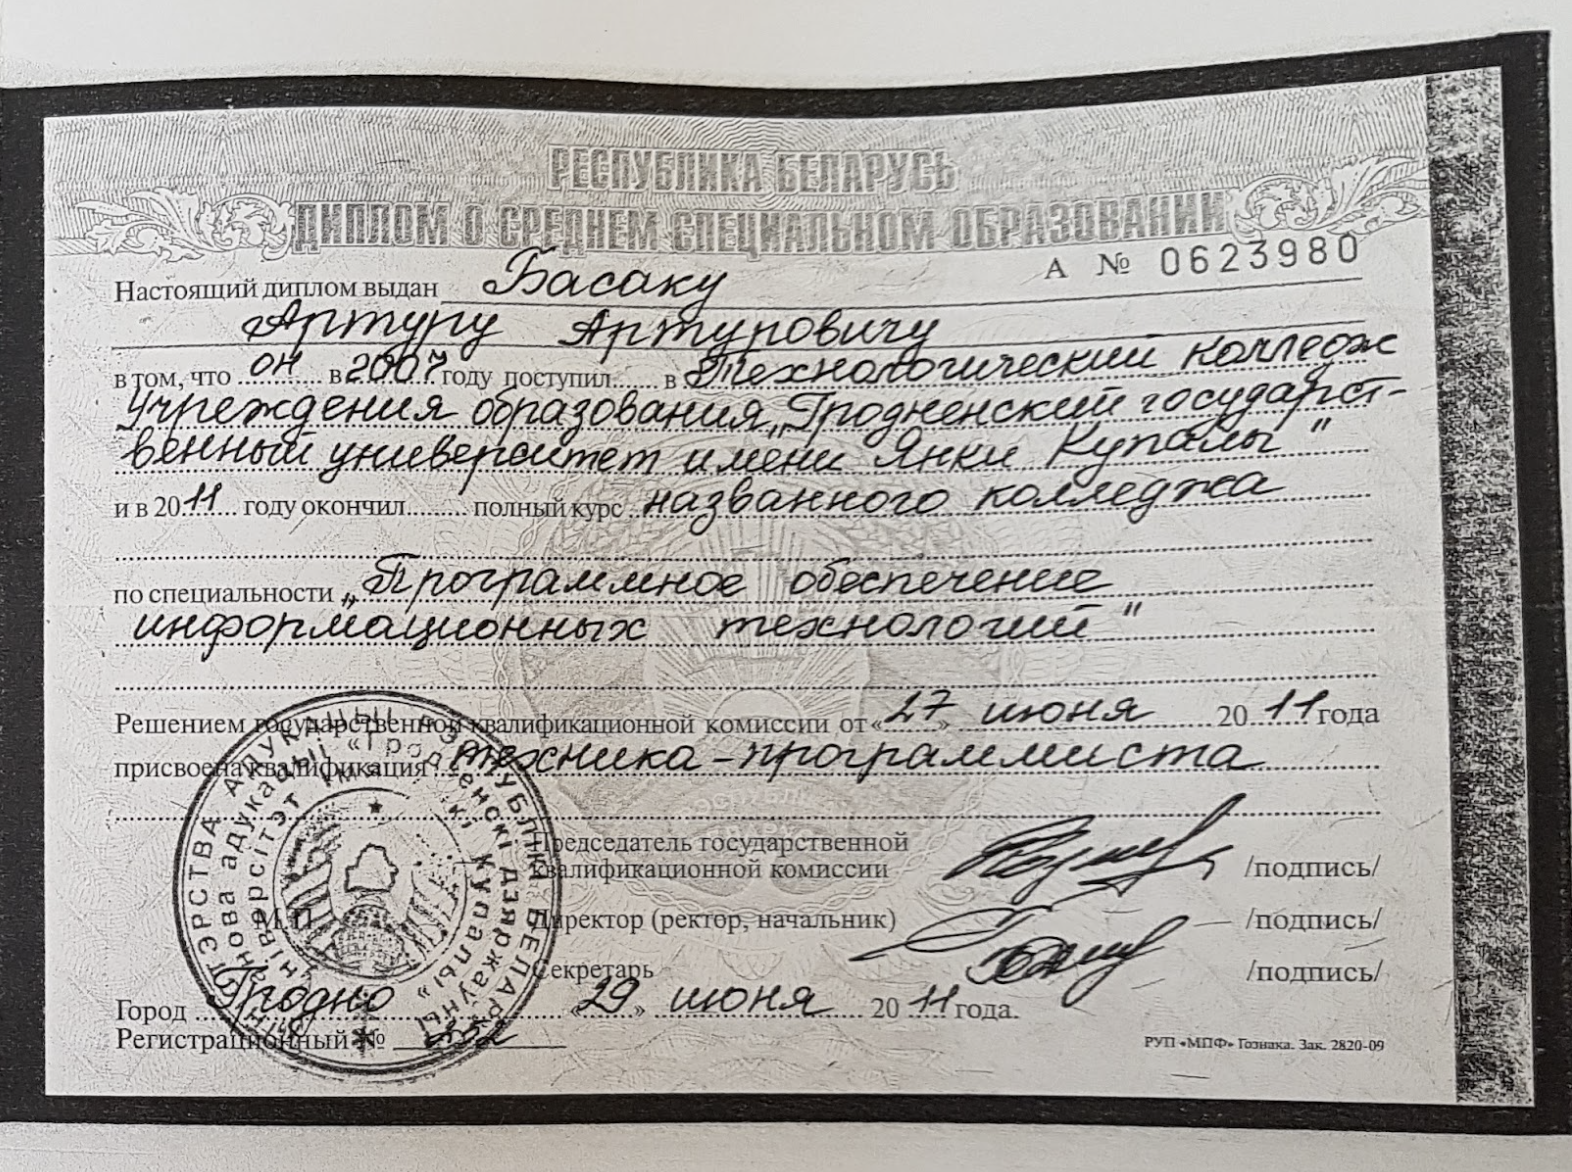 РЕСПУБЛИКА БЕЛАРУСЬ
ДИПЛОМ О СРЕДНЕМ СПЕЦИАЛЬНОМ ОБРАЗОВАНИИ
А № 0623980
Настоящий диплом выдан Басаку
Артуру Артуровичу
в том, что он в 2007 году поступил в Технологический колледж
Учреждения образования „Гродненский государст-
венный университет имени Янки Купалы"
и в 2011 году окончил полный курс названного колледжа
по специальности „Программное обеспечение
информационных технологий"
Решением государственной квалификационной комиссии от «27» июня 2011 года
присвоена квалификация техника-программиста
Председатель государственной
квалификационной комиссии /подпись/
М.П.
Директор (ректор, начальник) /подпись/
Секретарь /подпись/
Город Гродно «29» июня 2011 года.
Регистрационный №
РУП «МПФ» Гознака. Зак. 2820-09